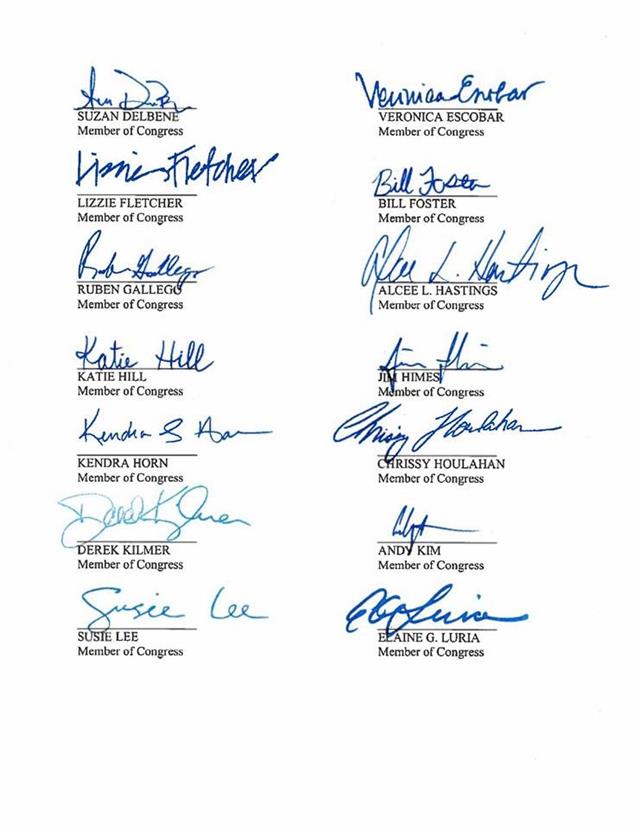 Suzan DelBene
Veronica Escobar
SUZAN DELBENE
VERONICA ESCOBAR
Member of Congress
Member of Congress
Lizzie Fletcher
Bill Foster
LIZZIE FLETCHER
BILL FOSTER
Member of Congress
Member of Congress
Ruben Gallego
Alcee L. Hastings
RUBEN GALLEGO
ALCEE L. HASTINGS
Member of Congress
Member of Congress
Katie Hill
Jim Himes
KATIE HILL
JIM HIMES
Member of Congress
Member of Congress
Kendra S Horn
Chrissy Houlahan
KENDRA HORN
CHRISSY HOULAHAN
Member of Congress
Member of Congress
Derek Kilmer
DEREK KILMER
ANDY KIM
Member of Congress
Member of Congress
Susie Lee
EGLuria
SUSIE LEE
ELAINE G. LURIA
Member of Congress
Member of Congress